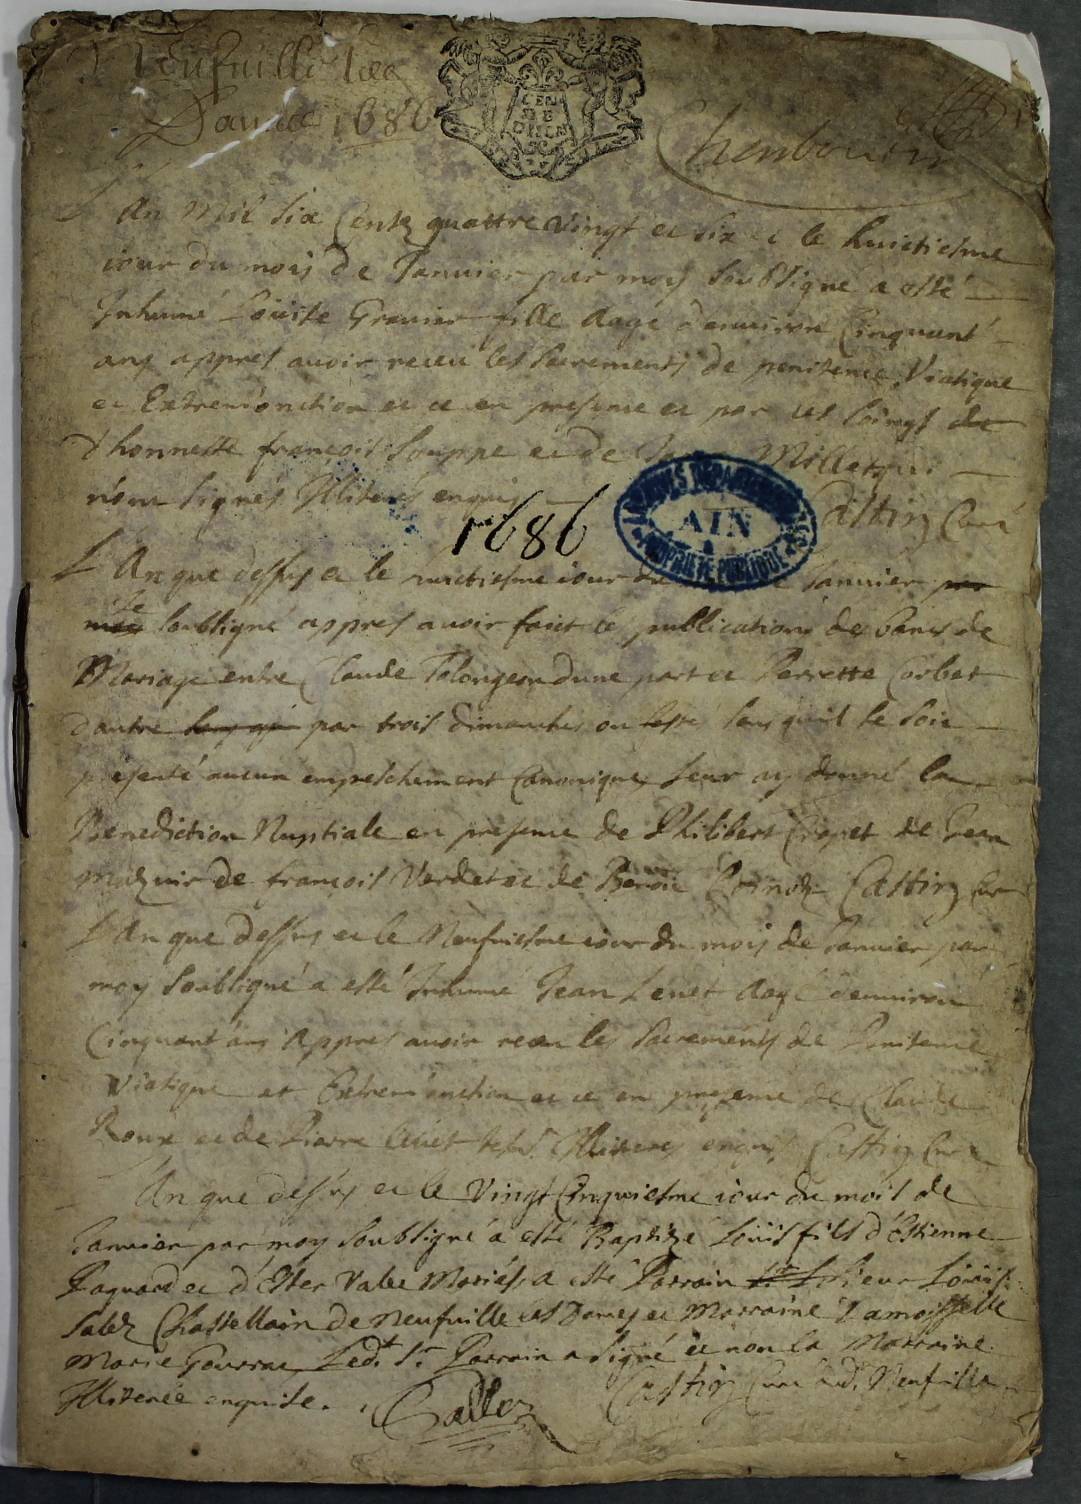 Neufville les
Dames 1686
GEN
DE
DIJON
L'An Mil six Cents quattre vingt et six et le huictiesme
iour du mois de Januier par moy soubsigné a esté
Inhumé Louise Grenier fille aage d'enuiron Cinquant
ans appres auoir receu les sacrements de penitence, Viatique
et Extremonction et ce en presence et par les soings de
d'honneste françois Souppe et de Millet
non signés Illiterés enquis Castin Curé
1686
ARCHIVES DEPARTEMENTALES
AIN
PROPRIETE PUBLIQUE
L'An que dessus et le huictiesme iour de Januier par
moy Je soubsigné appres auoir faict les publications des bans de
Mariage entre Claude Tolongeon d'une part et Perrette Corbet
d'autre par trois dimanches ou feste sans qu'il se soit
presenté aucun empeschement Canonique leur ay donné la
Benediction Nuptiale en presence de Philibert Cropet de Jean
de françois Verdet et de Benoit Castin Cur
L'An que dessus et le Neufuiesme iour du mois de Januier par
moy soubsigné a esté Inhumé Jean Lenet aagé d'enuiron
Cinquant ans Appres auoir receu les sacrements de Penitence
Viatique et Extremonction et ce en presence de Claude
Roux et de Pierre Illiteres enquis Castin Curé
L'An que dessus et le Vingt Cinquiesme iour du mois de
Januier par moy soubsigné a esté Baptizé Loüis fils d'Estienne
Paguard et d'Ester Vallee Mariés, a esté Parrain Sieur Loüis
Salez Chastellain de Neufuille les Dames et Marraine Damoiselle
Marie Gourrac Ledt Sr Parrain a signé et non la Marraine
Illiterée enquise. Castin Curé dud. Neufuille
Sallez